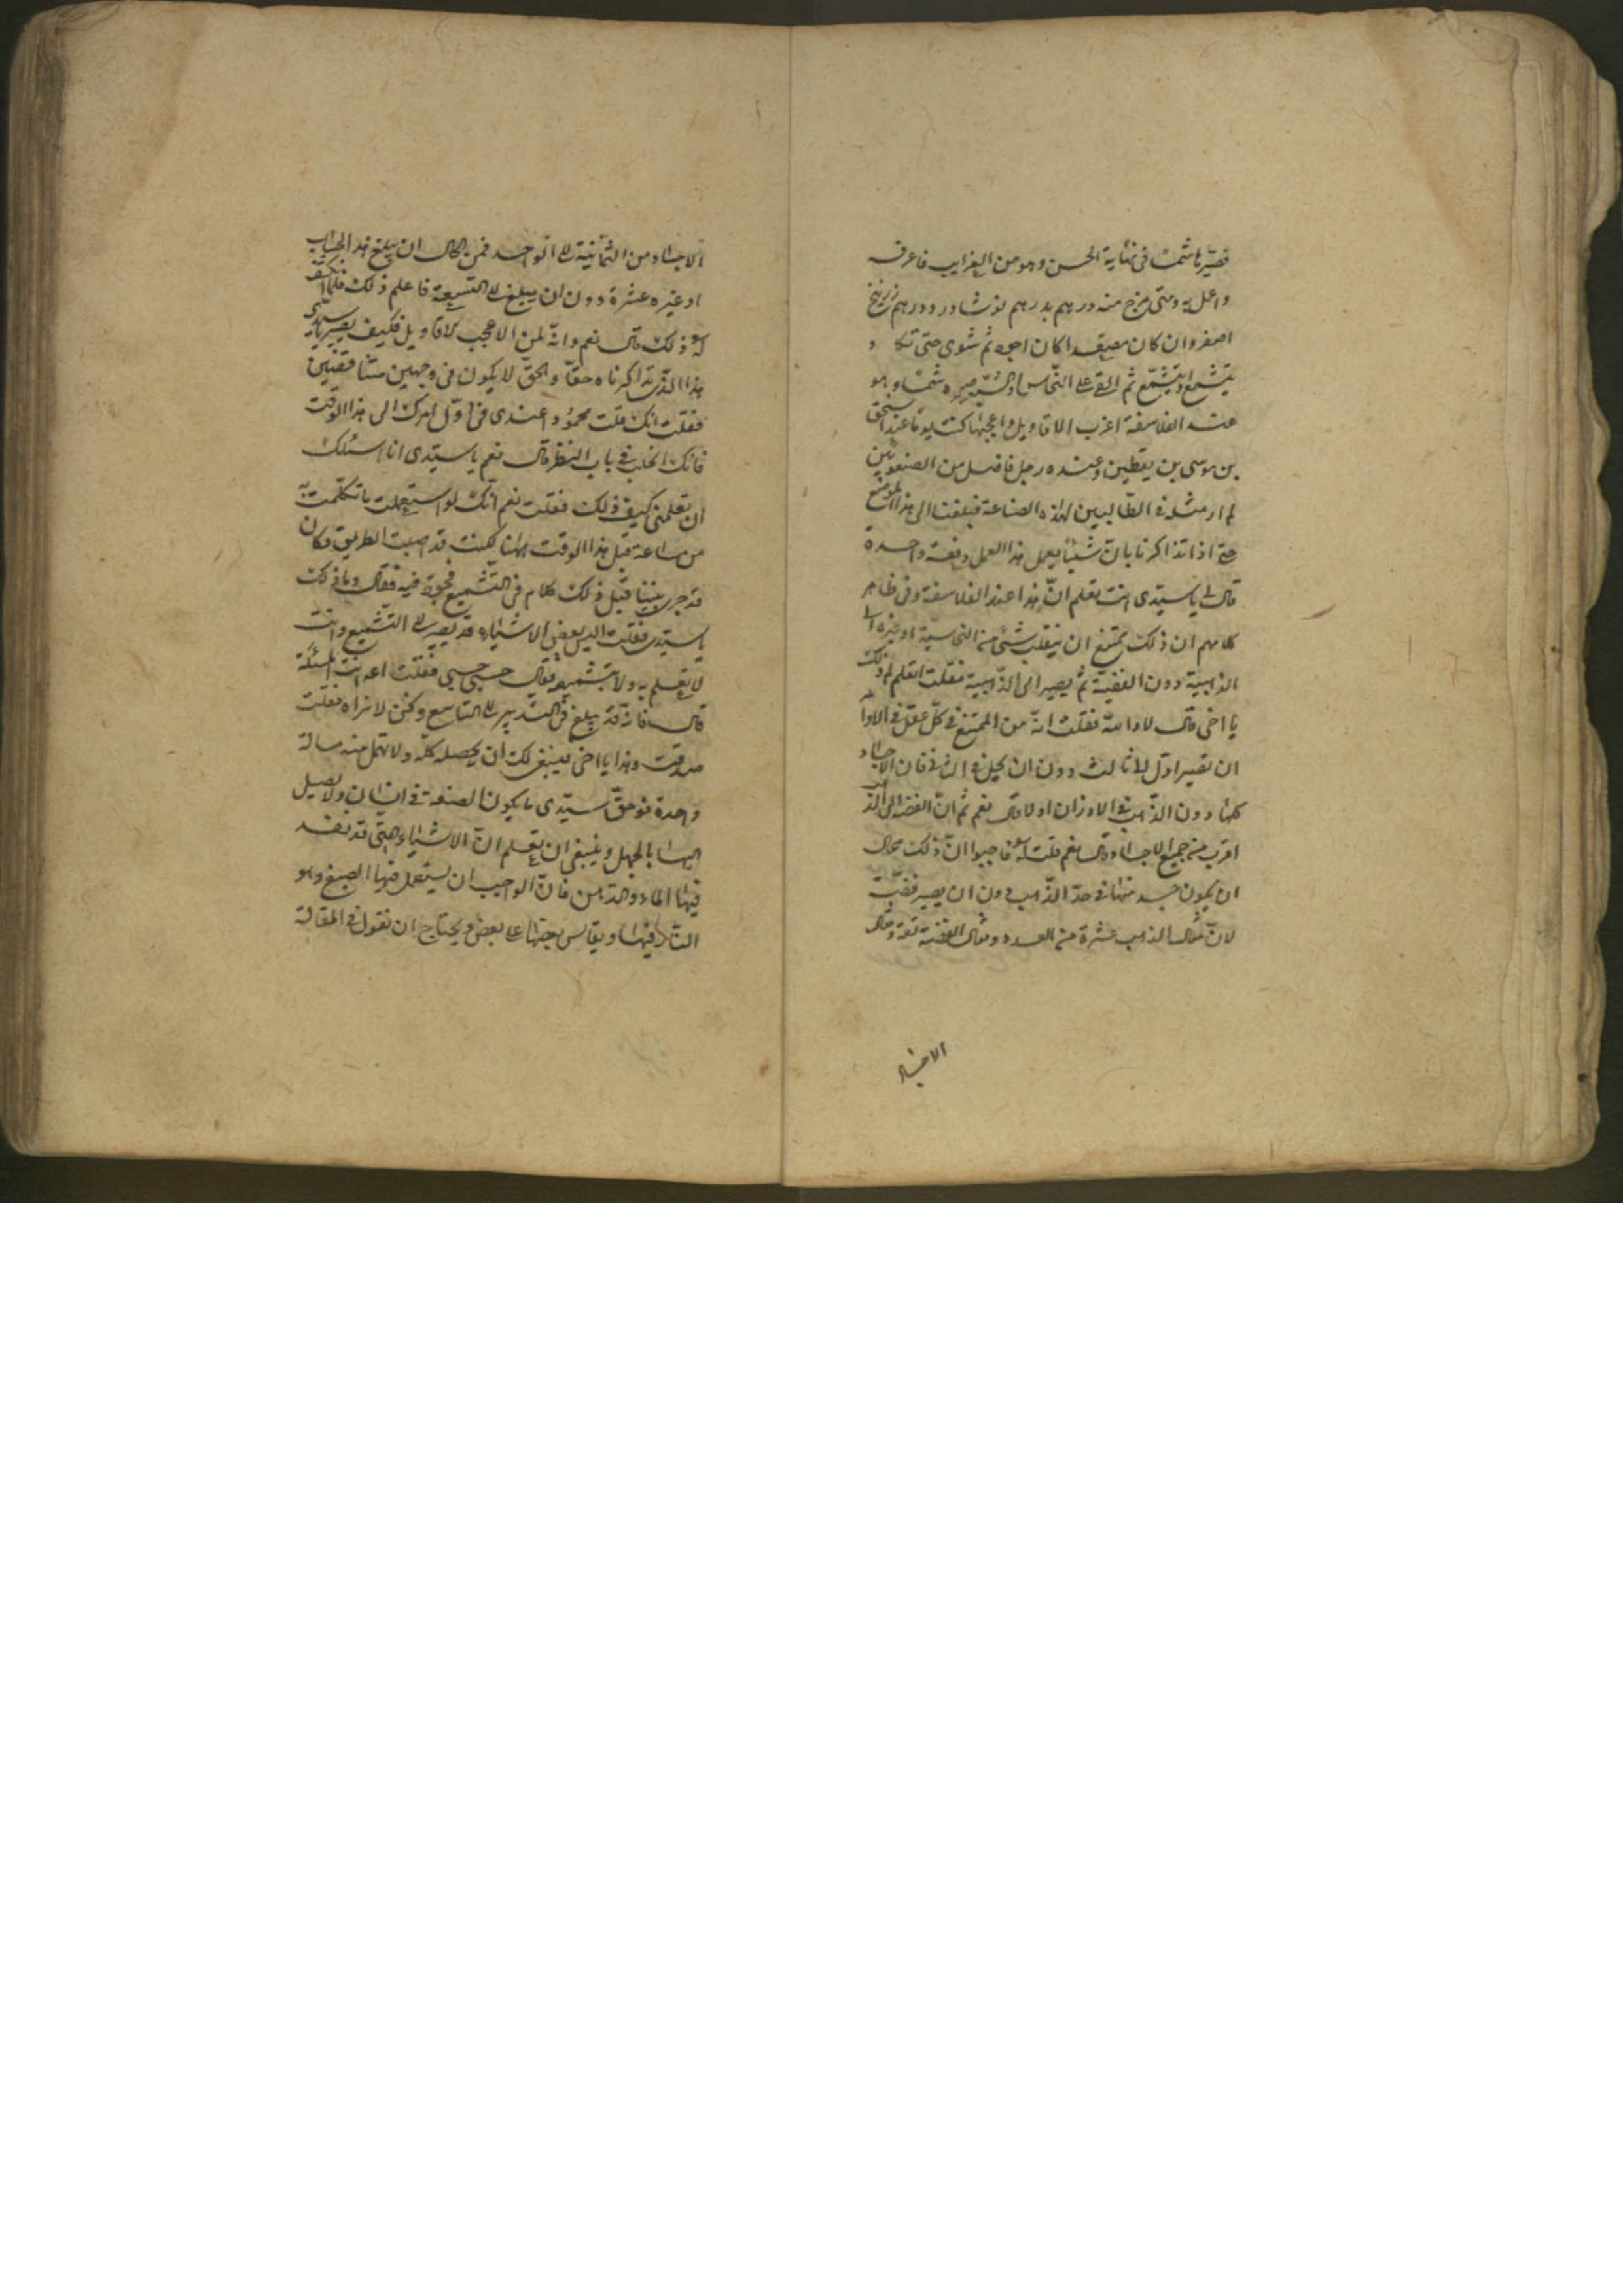 فصيّرها شمسًا فى نهاية الحسن وهو من الغرايب فاعرفه
واعمل به ومتى مزج منه درهم بدرهم نوشادر ودرهم زرنيخ
اصفر وان كان مصعّدا كان اجود ثم شوى حتى تكاد
يتشمع او يتشمّع ثم القى على النحاس او الشبّه صيره شمسًا وهو
عند الفلاسفة اغرب الاقاويل واعجبها كنت يومًا عند اسحق
بن موسى بن يقطين وعنده رجل فاضل من الصنعويّين
لم ار مثله فى الطّالبين لهذه الصناعة فبلغنا الى هذا الموضع
حتى اذا تذاكرنا بان شيئًا يعمل هذا العمل دفعة واحدة
قال لى يا سيّدى انت تعلم انّ هذا عند الفلاسفة وفى ظاهر
كلامهم ان ذلك يمتنع ان ينقلب شئ من النحاسية او غيره الى
الذهبية دون الفضيّة ثم يصير الى الذّهبية فقلت اتعلم لم ذلك
يا اخى قال لا والله فقلت انّه من الممتنع فى كلّ عقل فى الاول
ان تصير اوّل الا ثالث دون ان يحلّ فى الثانى فان الاجساد
كلها دون الذّهب فى الاوزان اولا قال نعم ثم انّ الفضّة الى الذهب
اقرب من جميع الاجساد قال نعم قلت له فاجبوا انّ ذلك محال
ان يكون جسد منها فى حدّ الذّهب دون ان يصير فضّة
لانّ مثال الذهب عشرة من العدد ومثال الفضّة تسعة ومثال
الاجساد
الاجساد من الثمانية الى الواحد فمن المحال ان يبلغ هذا الحساب
او غيره عشرة دون ان يبلغ الى التسعة فاعلم ذلك فلما انكشف
له ذلك قال نعم وانّه لمن الاعجب الاقاويل فكيف يصير يا سيدى
هذا الذّى تذاكرناه حقّا والحقّ لا يكون فى وجهين متناقضين
فقلت انك قلت محمود عندى فى اوّل امرك الى هذا الوقت
فانك فى باب النظر قال نعم يا سيّدى انا اسئلك
ان تعلمنى كيف ذلك فقلت نعم انّك لو استعملت ما تكلّمت به
من ساعة قبل هذا الوقت ههنا لكنت قد اصبت الطريق وكان
قد جرى بيننا قبل ذلك كلام فى التّشميع فجوّد فيه فقال وما ذلك
يا سيّدى فقلت اليس بعض الاشياء قد يصير الى التّشميع وانت
لا تعلم به ولا بتشميعه فقال حسبى حسبى فقلت اعد المسئلة
قال فانّه قد يبلغ فى التدبير الى التاسع ولكن لا نراه فقلت
صدقت وهذا يا اخى فينبغى لك ان تحصله كلّه ولا تهمل منه رسالة
واحدة فوحقّ سيّدى ما يكون الصنعة فى انسان ولا يصيل
اليها بالجهل وينبغى ان تعلم انّ الاشياء التى قد نفد
فيها الماء والدهن فانّ الواجب ان يستعمل فيها الصبغ وهو
النّار فيها ويقاس بعضها على بعض ويحتاج ان نقول فى المقالة